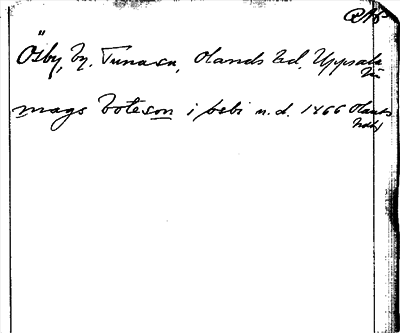 Ösby, by, Tuna sn, Olands hd, Uppsala län
mags boteson i øsbi n.d. 1466 Olands hdbf